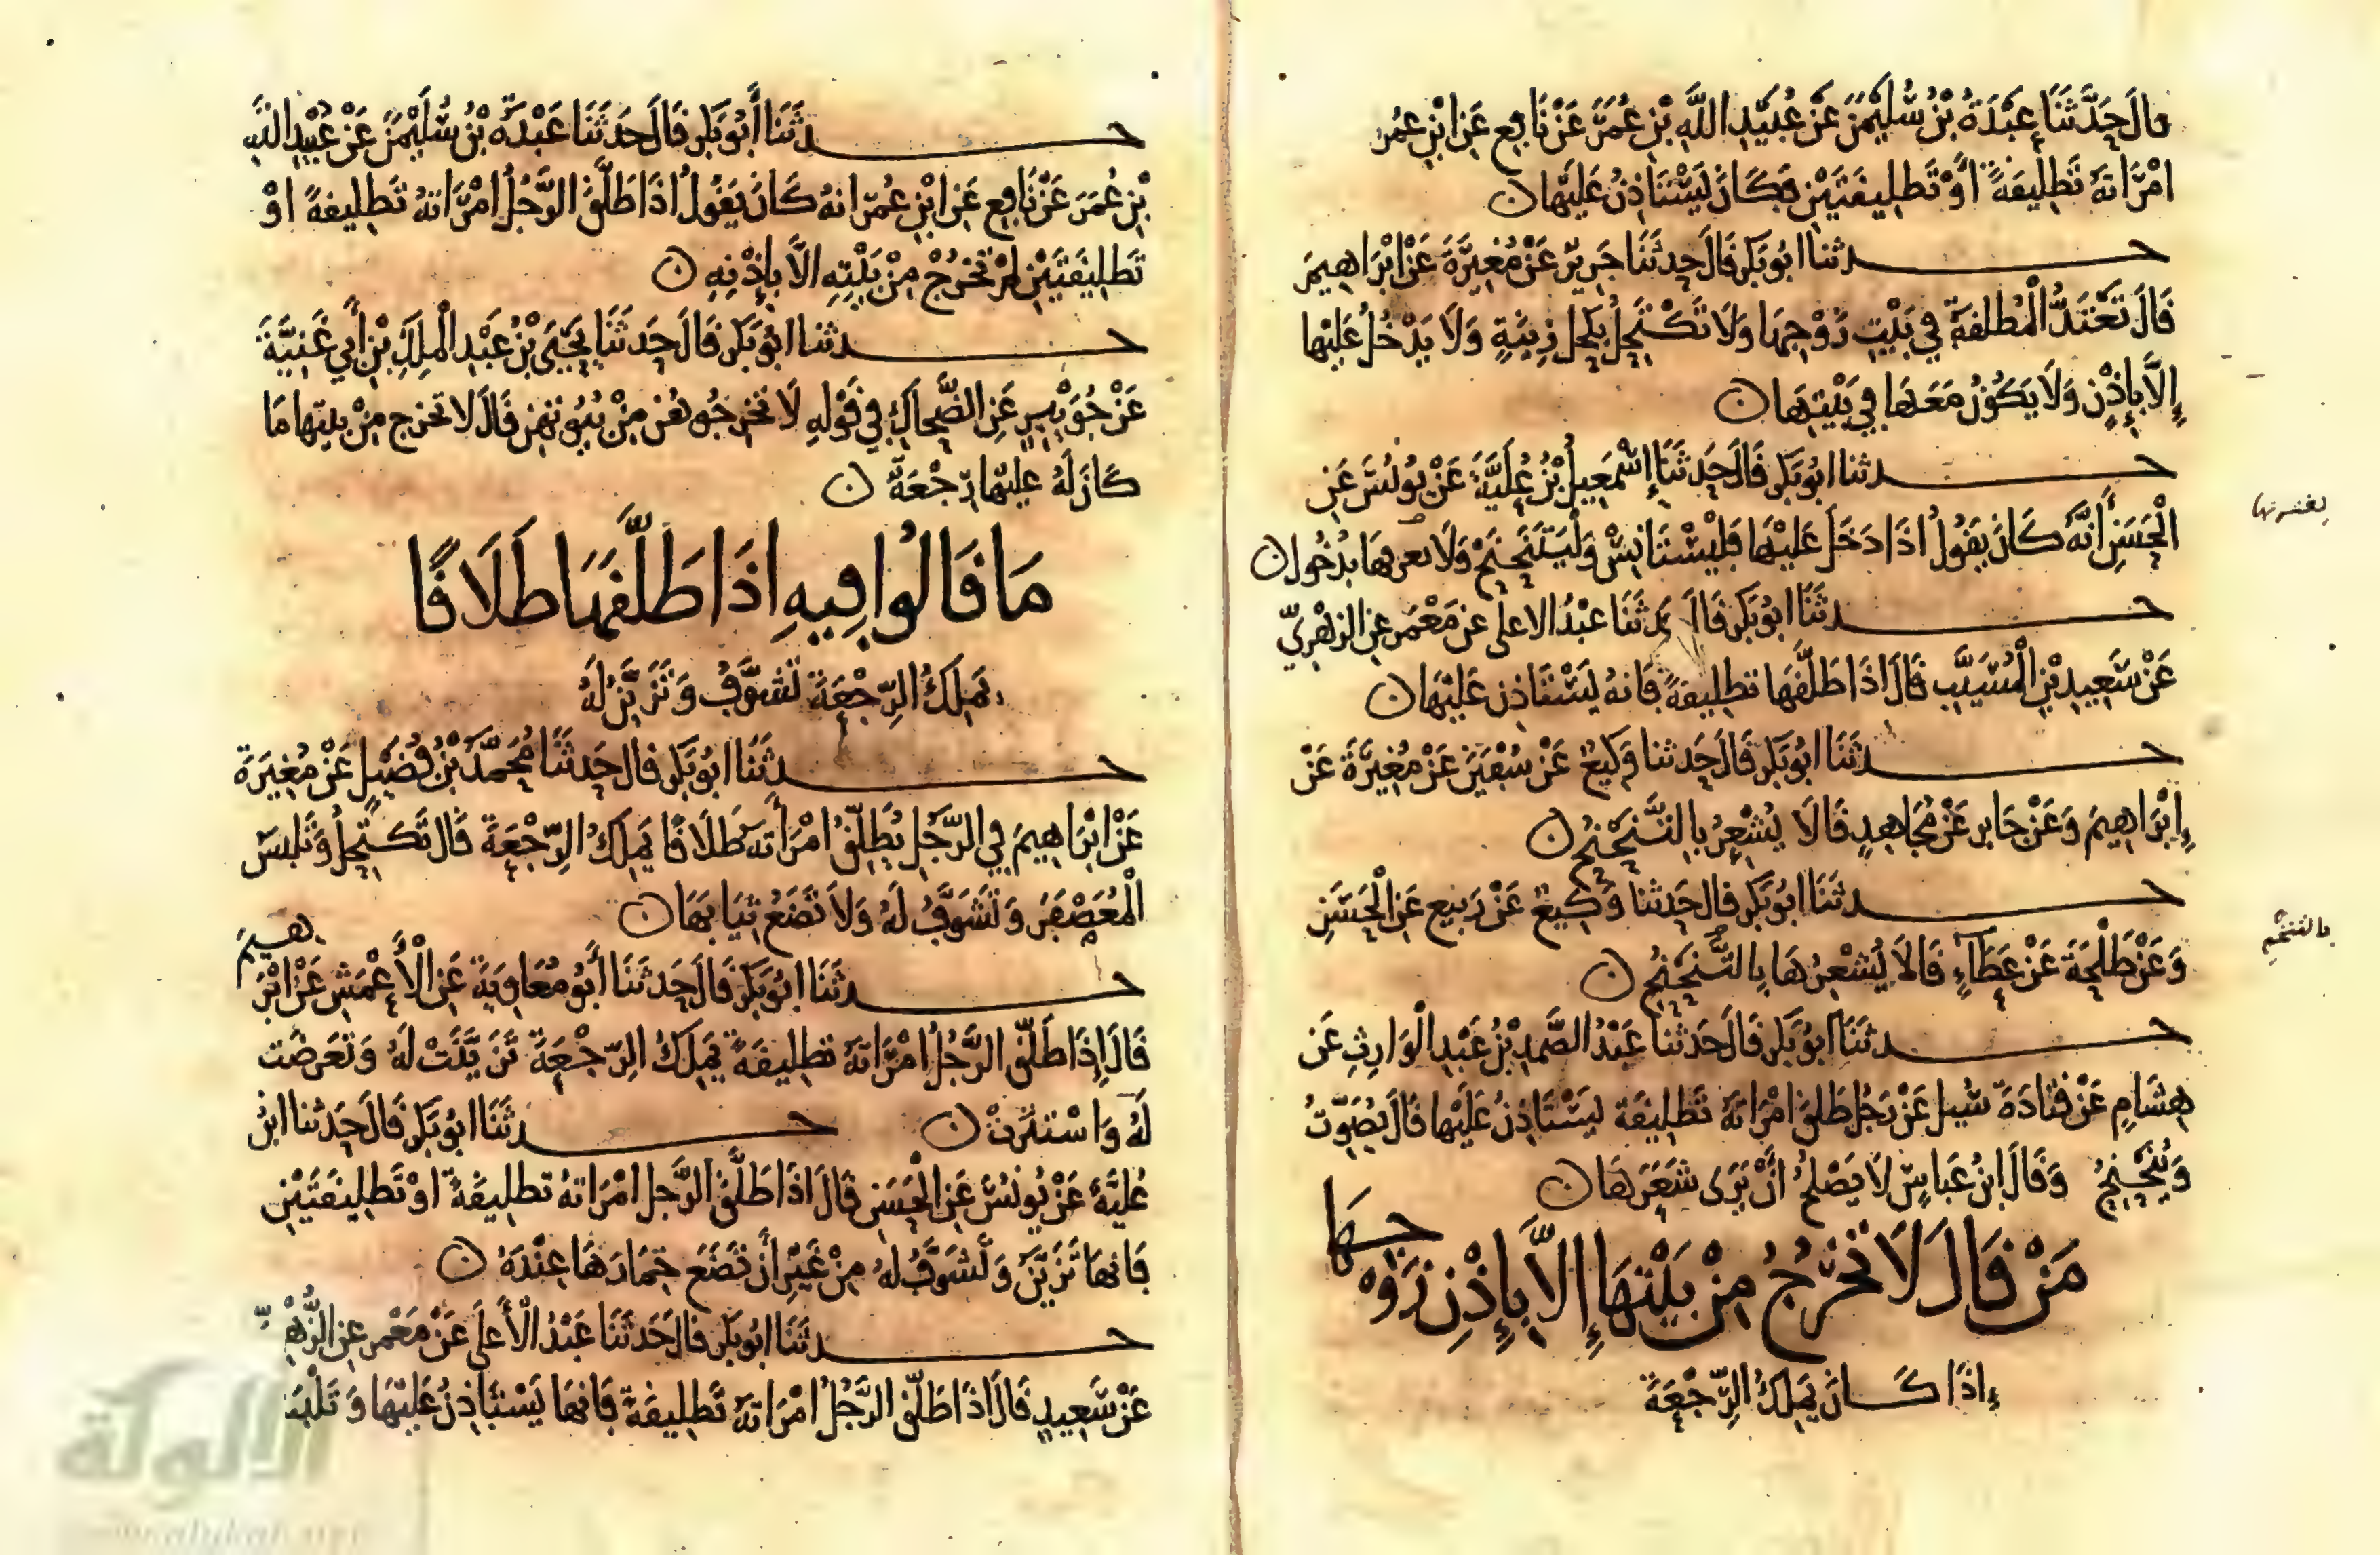 قال حَدَّثَنَا عَبْدَةُ بْنُ سُلَيْمٰنَ عَنْ عُبَيْدِ اللَّهِ بْنِ عُمَرَ عَنْ نَافِعٍ عَنِ ابْنِ عُمَرَ
امْرَاتهُ تَطْلِيقَةً اَوْ تَطْلِيقَتَيْنِ فَكَانَ يَسْتَاذِنُ عَلَيْهَا ن
حدثنا ابُو بَكْرٍ قَالَ حَدثَنَا جَرِيرٌ عَنْ مُغِيرَةَ عَنْ اِبْرَاهِيمَ
قَالَ تَعْتَدُّ الْمُطَلقَةُ فِي بَيْتِ زَوْجِهَا وَلَا تَكْتَحِلُ بِكُحْلِ زِينَةٍ وَلَا يَدْخُلُ عَلَيْهَا
إِلَّا بِإِذْنٍ وَلَا يَكُونُ مَعَهَا فِي بَيْتِهَا ن
حدثنا ابُو بَكْرٍ قَالَ حَدثَنَا إِسْمَعِيلُ بْنُ عُلَيَّةَ عَنْ يُونُسَ عَنِ
الْحَسَنِ أَنَّهُ كَانَ يَقُولُ اذَا دَخَلَ عَلَيْهَا فَلْيَسْتَانِسْ وَلْيَتَنَحْنَحْ وَلَا بدُخُول ن
حدثَنَا ابُو بَكْرٍ قَال حدثَنَا عَبْدُ الاعلى عن مَعْمَرٍ عن الزهْرِيّ
عَنْ سَعِيدِ بْنِ الْمُسَيَّبِ قَالَ اذَا طَلَّقَهَا تطلِيقَةً فَانهُ يَسْتَاذِن عَلَيْهَا ن
حدثَنَا ابُو بَكْرٍ قَالَ حَدثنا وَكِيعٌ عَنْ سُفْيَنَ عَنْ مُغِيرَةَ عَنْ
إِبْرَاهِيمَ وَعَنْ جَابرٍ عَنْ مُجَاهِدٍ قَالَا يُشْعِرُ بِالتَّنَحْنُحِ ن
حدثَنَا ابُو بَكْرٍ قال حَدثنا وَكِيعٌ عَنْ رَبيعٍ عَنِ الْحَسَنِ
وَعَنْ طَلْحَةَ عَنْ عَطَآءٍ قَالَا يُشْعِرُهَا بِالتَّنَحْنُحِ ن
بالتنخم
حدثَنَا ابُو بَكْرٍ قَالَ حَدثنا عَبْدُ الصَّمَدِ بْنُ عَبْدِ الْوَارِثِ عَن
هِشَامٍ عَنْ قَتَادَةَ سُئِلَ عَنْ رَجُلٍ طَلقَ امْرَاتهُ تَطْلِيقَة يَسْتَاذِنُ عَلَيْهَا قَالَ يُصَوِّتُ
وَيُتَنَحْنِحُ وَقَالَ ابْنُ عَبَاسٍ لَا يَصْلُحُ انْ يَرَى شَعَرَهَا ن
مَنْ قَالَ لَا تَخْرُجُ مِنْ بَيْتِهَا إِلَّا بِإِذْنِ زَوْجِهَا
إذَا كَانَ يَمْلِكُ الرِّجْعَةَ
حدثَنَا أَبُو بَكْرٍ قَالَ حَدَثَنَا عَبْدَةُ بْنُ سُلَيْمٰنَ عَنْ عُبَيْدِ اللَّهِ
بْنِ عُمَرَ عَنْ نَافِعٍ عَنِ ابْنِ عُمَرَ انهُ كَانَ يَقُولُ اذَا طَلَّقَ الرَّجُلُ امْرَاتهُ تَطْلِيقَةً اوْ
تَطْلِيقَتَيْنِ لَمْ تَخْرُجْ مِنْ بَيْتِهِ الَّا بِإِذْنِهِ ن
حدثنا ابُو بَكْرٍ قَالَ حَدثَنَا يَحْيَى بْنُ عَبْدِ الْمَلِكِ بْنِ أَبِي غَنِيَّةَ
عَنْ جُوَيْبِرٍ عَنِ الضَّحاكِ فِي قَوْلِهِ لَا تخْرِجُوهُن مِنْ بُيُوتِهِن قَالَ لا تخرج مِنْ بيتِهَا مَا
كَانَ لَهُ عَلَيْهَا رَجْعَةٌ ن
مَا قَالُوا فِيهِ اذَا طَلَّقَهَا طَلَاقًا
يَمْلِكُ الرِّجْعَةَ تَشَوَّفُ وَتَزَيَّنُ لَهُ
حدثَنَا ابُو بَكْرٍ قال حَدثَنَا مُحَمَّدُ بْنُ فُضَيْلٍ عَنْ مُغِيرَةَ
عَنْ ابْرَاهِيمَ فِي الرَّجُلِ يُطَلِّقُ امْرَأَتَهُ طَلَاقًا يَمْلِكُ الرِّجْعَةَ قَالَ تَكْتَحِلُ وَتَلْبَسُ
الْمُعَصْفَرَ وَتَشَوَّفُ لَهُ وَلَا تَضَعُ ثِيَابهَا ن
حدثَنَا ابُو بَكْرٍ قَالَ حَدثَنَا أَبُو مُعَاوِيَةَ عَنِ الْأَعْمَشِ عَنْ ابْرَهِيمَ
قَالَ إِذَا طَلَّقَ الرَّجُلُ امْرَاتَهُ تطلِيقَةً يَمْلِكُ الرِّجْعَةَ تَزَيَّنَتْ لَهُ وَتَعَرضَت
لَهُ وَاسْتَتَرَتْ ن حدثَنَا ابُو بَكْرٍ قَالَ حَدثنا ابْنُ
عُلَيَّةَ عَنْ يُونُسَ عَنِ الْحَسَنِ قَالَ اذَا طَلَّقَ الرَّجل امْرَاتهُ تطلِيقَةً اوْ تَطْلِيقَتَيْنِ
فَانهَا تَزَيَّنُ وَتَشَوَّفُ لهُ مِنْ غَيْرِ أَنْ تَضَعَ خِمَارَهَا عِنْدَهُ ن
حدثَنَا ابُو بَكْرٍ قال حَدثَنَا عَبْدُ الْأَعلَى عَنْ مَعْمرٍ عنِ الزُّهْرِ
عَنْ سَعِيدٍ قَالَ اذَا طَلَّقَ الرَّجُلُ امْرَاتهُ تَطْلِيقَةً فَانهَا يَسْتَاذِنُ عَلَيْهَا وَتَلْبَسُ
الألوكة